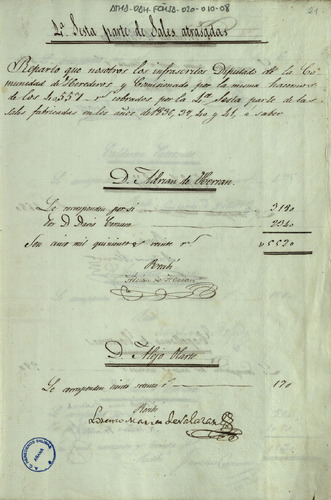 ATHA-DAH-FCHSA-020-010-08
21
2ª Sesta parte de Sales atrasadas
Reparto que nosotros los infrascritos Diputado de la Co-
munidad de Herederos y Comisionado por la misma hacemos
de los 4557 rs cobrados por la 2ª Sesta parte de las
Sales fabricadas en los años de 1838, 39, 40 y 41, a saber
D. Adrian de Herran.
Le corresponden por sí 3180
Por D. 2340
Son cinco mil quinientos veinte rs 5520
Recibí
Adrian de Herran
D. Alejo Olarte
Le corresponden ciento setenta rs 170
Recibí
Lorenzo Maria de Salazar